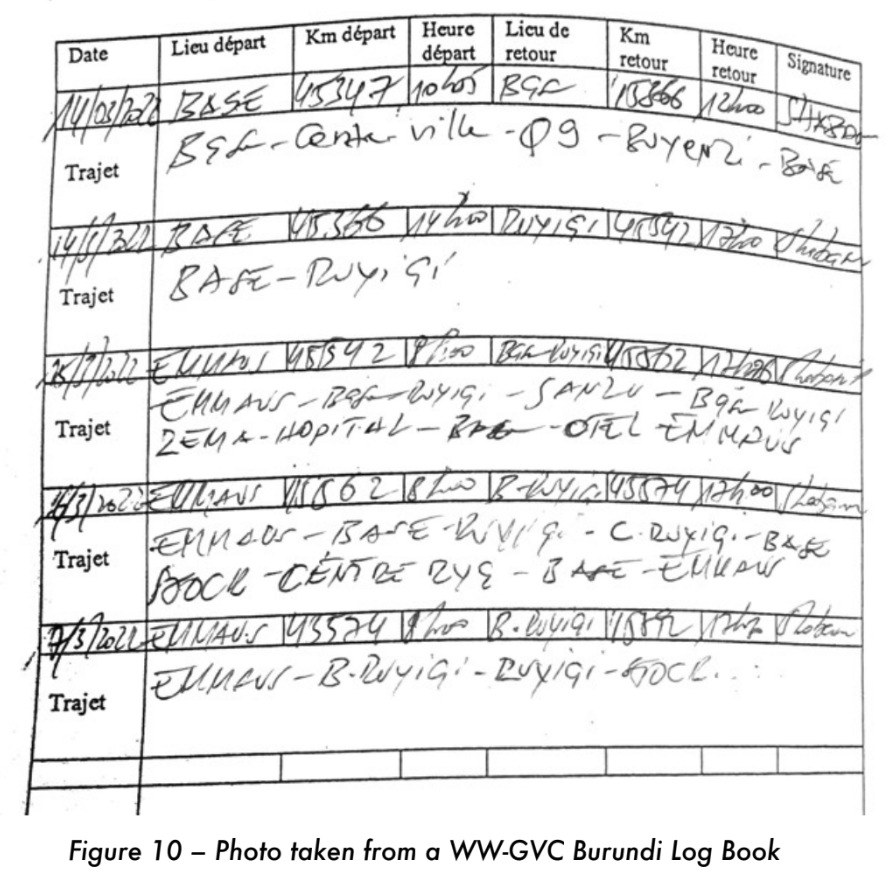 Date Lieu départ Km départ Heure départ Lieu de retour Km retour Heure retour Signature
14/03/2022 BASE 45347 10h05 BASE 45366 12h00
Trajet BASE - Centre ville - Q9 - BUYENZI - BASE
BASE 45366 14h00 RUYIGI 45542 17h00 Shabani
Trajet BASE - RUYIGI
EMMAUS 45542 8h00 RUYIGI 45562 Shabani
Trajet EMMAUS - BASE RUYIGI - SANZU - BASE RUYIGI
ZEMA - HOPITAL - BASE - OTEL EMMAUS
EMMAUS 45562 8h00 B-RUYIGI 45574 17h00 Shabani
Trajet EMMAUS - BASE - RUYIGI - C. RUYIGI - BASE
STOCK - CENTRE RYG - BASE - EMMAUS
7/3/2022 EMMAUS 45574 8h00 B. RUYIGI Shabani
Trajet EMMAUS - B. RUYIGI - RUYIGI - STOCK....
Figure 10 – Photo taken from a WW-GVC Burundi Log Book